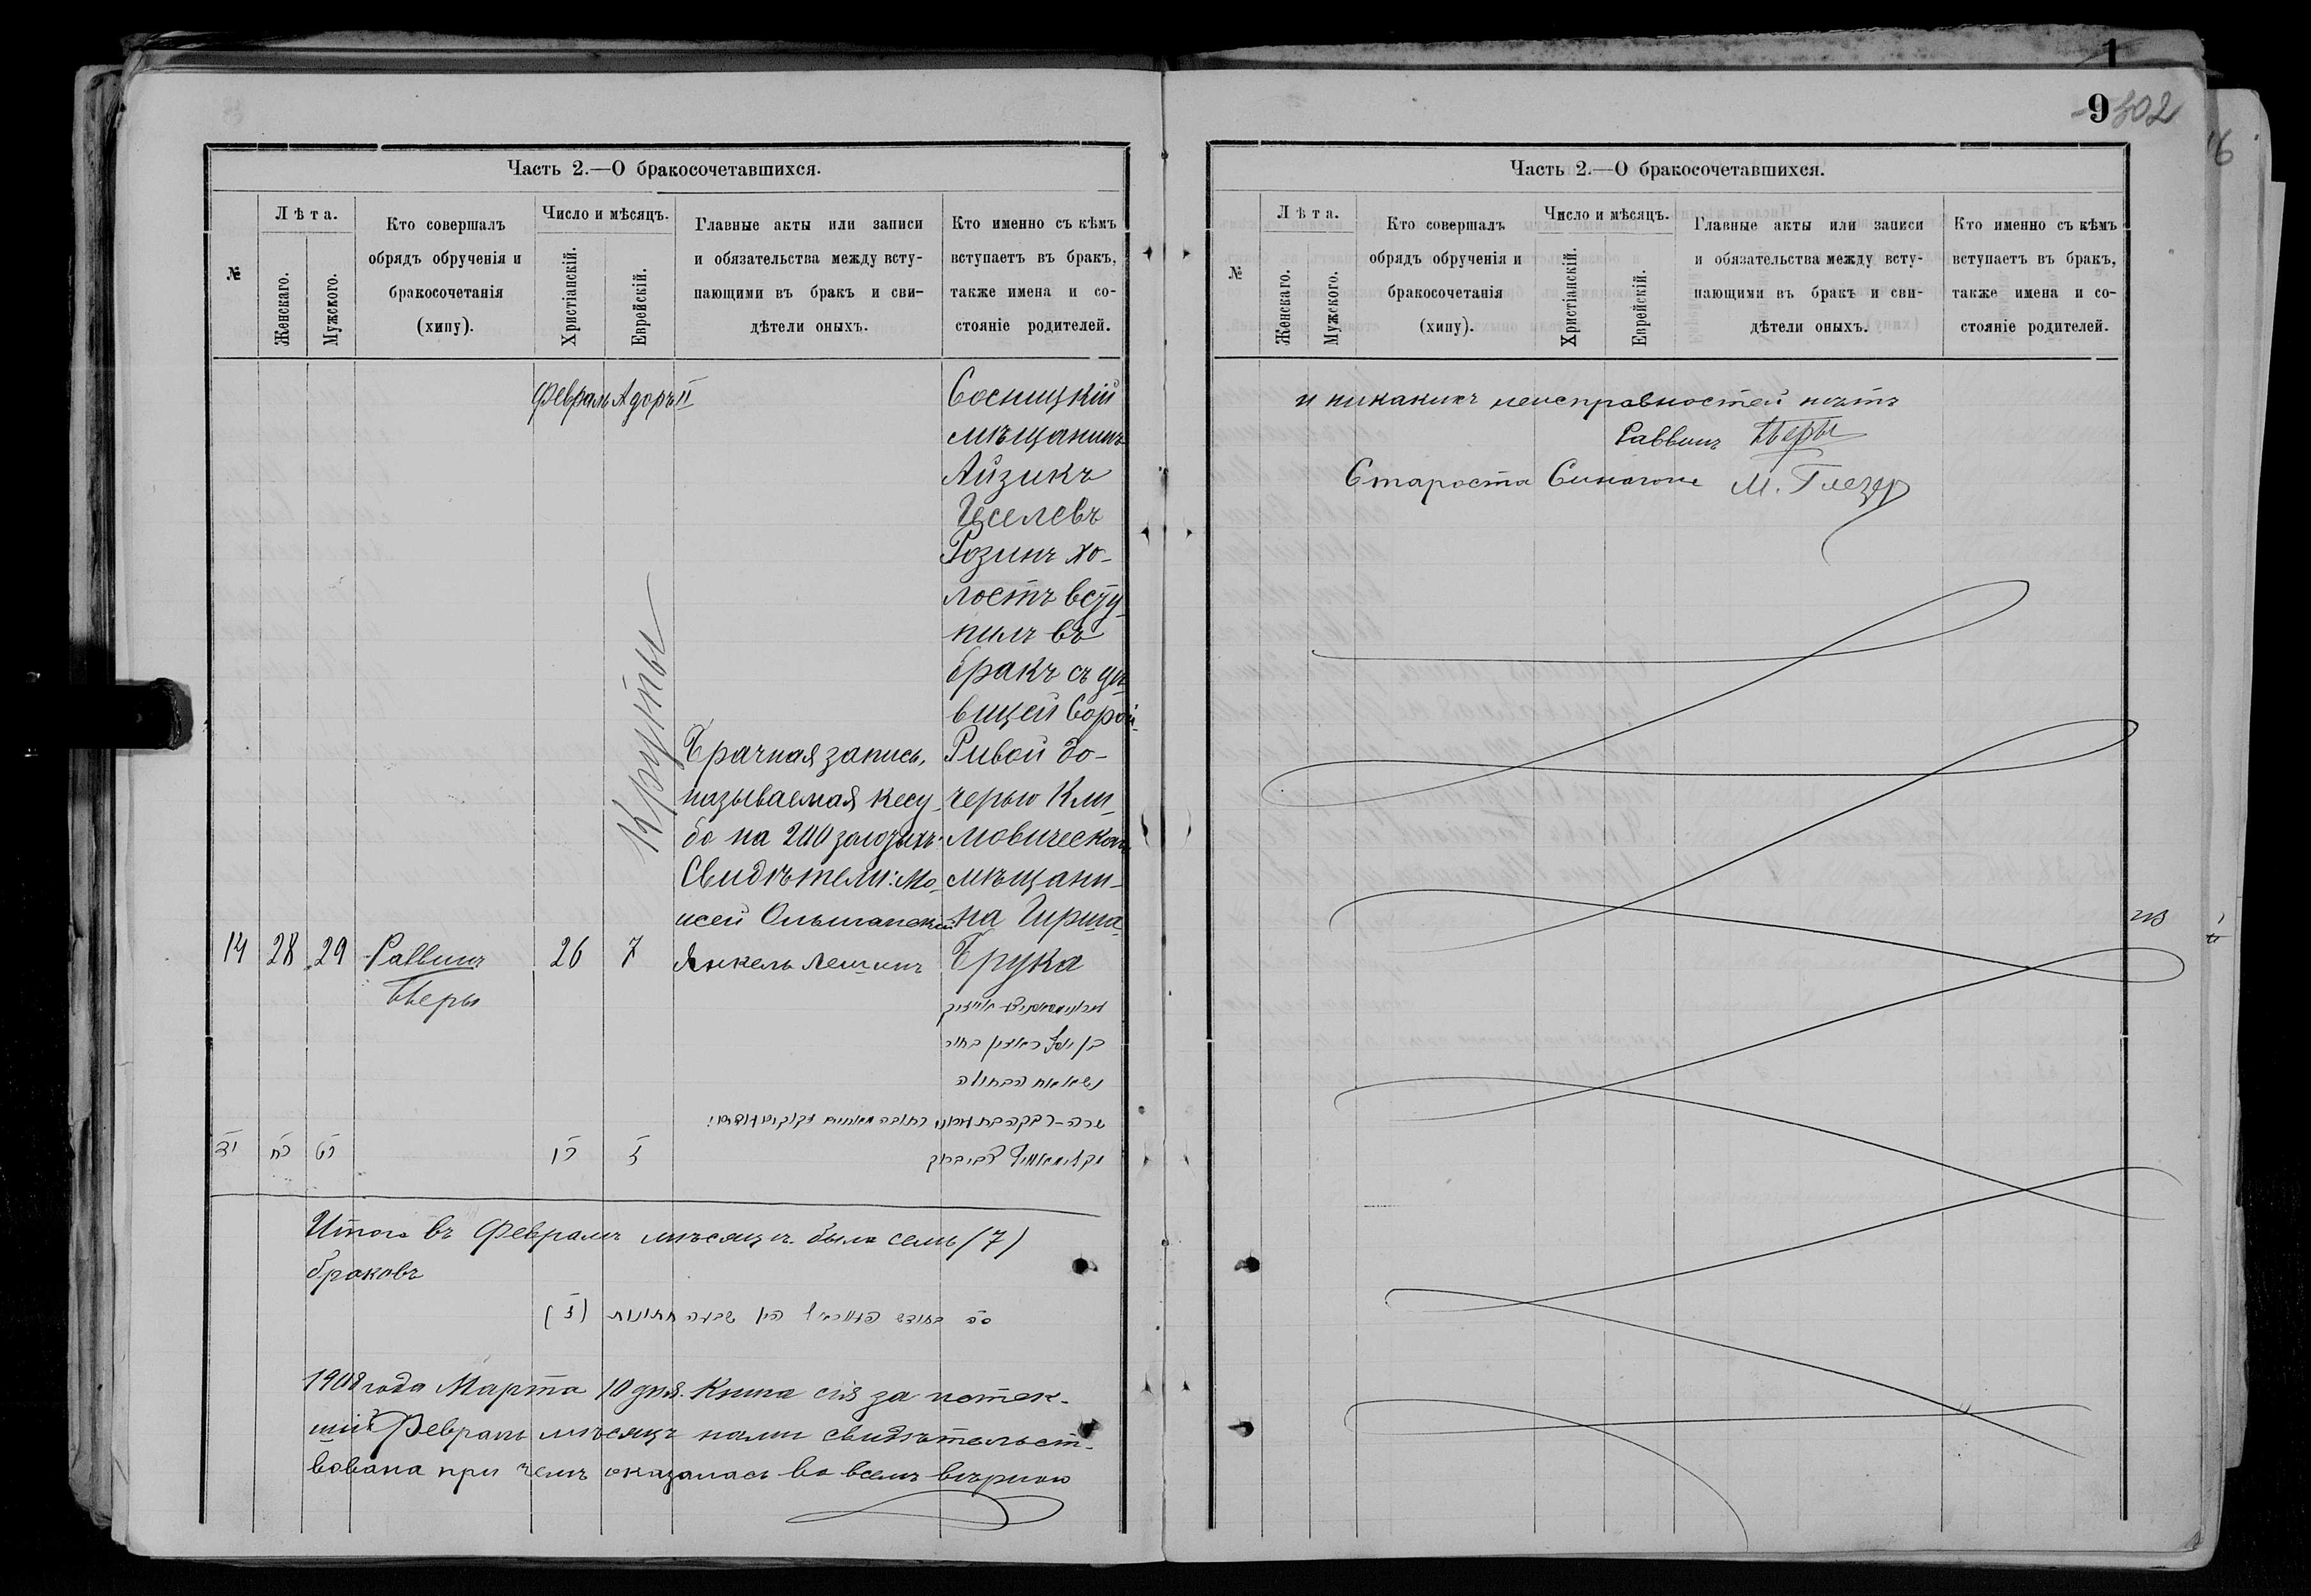 Часть 2.—О бракосочетавшихся.
№
Лѣта.
Женскаго.
Мужского.
Кто совершалъ
обрядъ обрученія и
бракосочетанія
(хипу).
Число и мѣсяцъ.
Христіанскій.
Еврейскій.
Главные акты или записи
и обязательства между всту-
пающими въ бракъ и сви-
дѣтели оныхъ.
Кто именно съ кѣмъ
вступаетъ въ бракъ,
также имена и со-
стояніе родителей.
Февраль Адоръ II
Сосницкій
мѣщанинъ
Айзикъ
Іоселевъ
Розинъ хо-
лостъ всту-
пилъ въ
бракъ съ дѣ-
вицей Сорой-
Ривой до-
черью Кли-
мовическаго
мѣщани-
на Гирша
Брука
Брачная запись,
называемая кесу-
бо на 200 золотыхъ.
Свидѣтели: Мо-
исей Ольшанскій
Янкель Лешинъ
14 28 29 Раввинъ 26 7
יד כח כט כו ז
Итого въ Февралѣ мѣсяцѣ было семь (7)
браковъ
סה בחודש פעווראל היו שבעה חתונות (ז)
1908 года Марта 10 дня. Книга сія за истек-
шій Февраль мѣсяцъ нами свидѣтельст-
вована при чемъ оказалась во всемъ вѣрною
1
9 302
Часть 2.—О бракосочетавшихся.
№
Лѣта.
Женскаго.
Мужского.
Кто совершалъ
обрядъ обрученія и
бракосочетанія
(хипу).
Число и мѣсяцъ.
Христіанскій.
Еврейскій.
Главные акты или записи
и обязательства между всту-
пающими въ бракъ и сви-
дѣтели оныхъ.
Кто именно съ кѣмъ
вступаетъ въ бракъ,
также имена и со-
стояніе родителей.
и никакихъ неисправностей нѣтъ
Раввинъ
Староста Синагоги М. Глезер